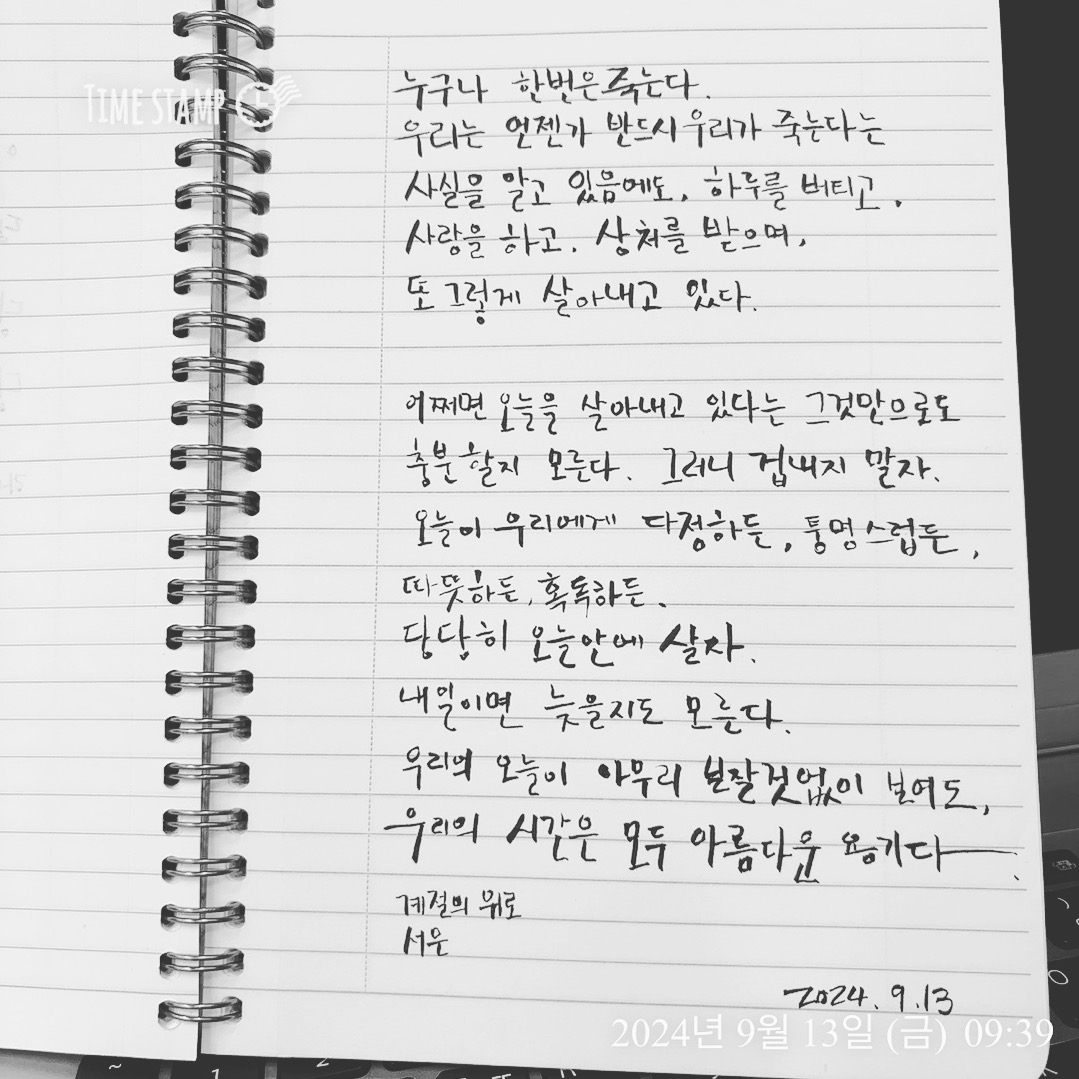 TIME STAMP
누구나 한번은 죽는다.
우리는 언젠가 반드시 우리가 죽는다는
사실을 알고 있음에도, 하루를 버티고,
사랑을 하고, 상처를 받으며,
또 그렇게 살아내고 있다.
어쩌면 오늘을 살아내고 있다는 그것만으로도
충분할지 모른다. 그러니 겁내지 말자.
오늘이 우리에게 다정하든, 퉁명스럽든,
따뜻하든, 혹독하든.
당당히 오늘안에 살자.
내일이면 늦을지도 모른다.
우리의 오늘이 아무리 보잘것없이 보여도,
우리의 시간은 모두 아름다운 용기다.
계절의 위로
서운
2024. 9. 13
2024년 9월 13일 (금) 09:39